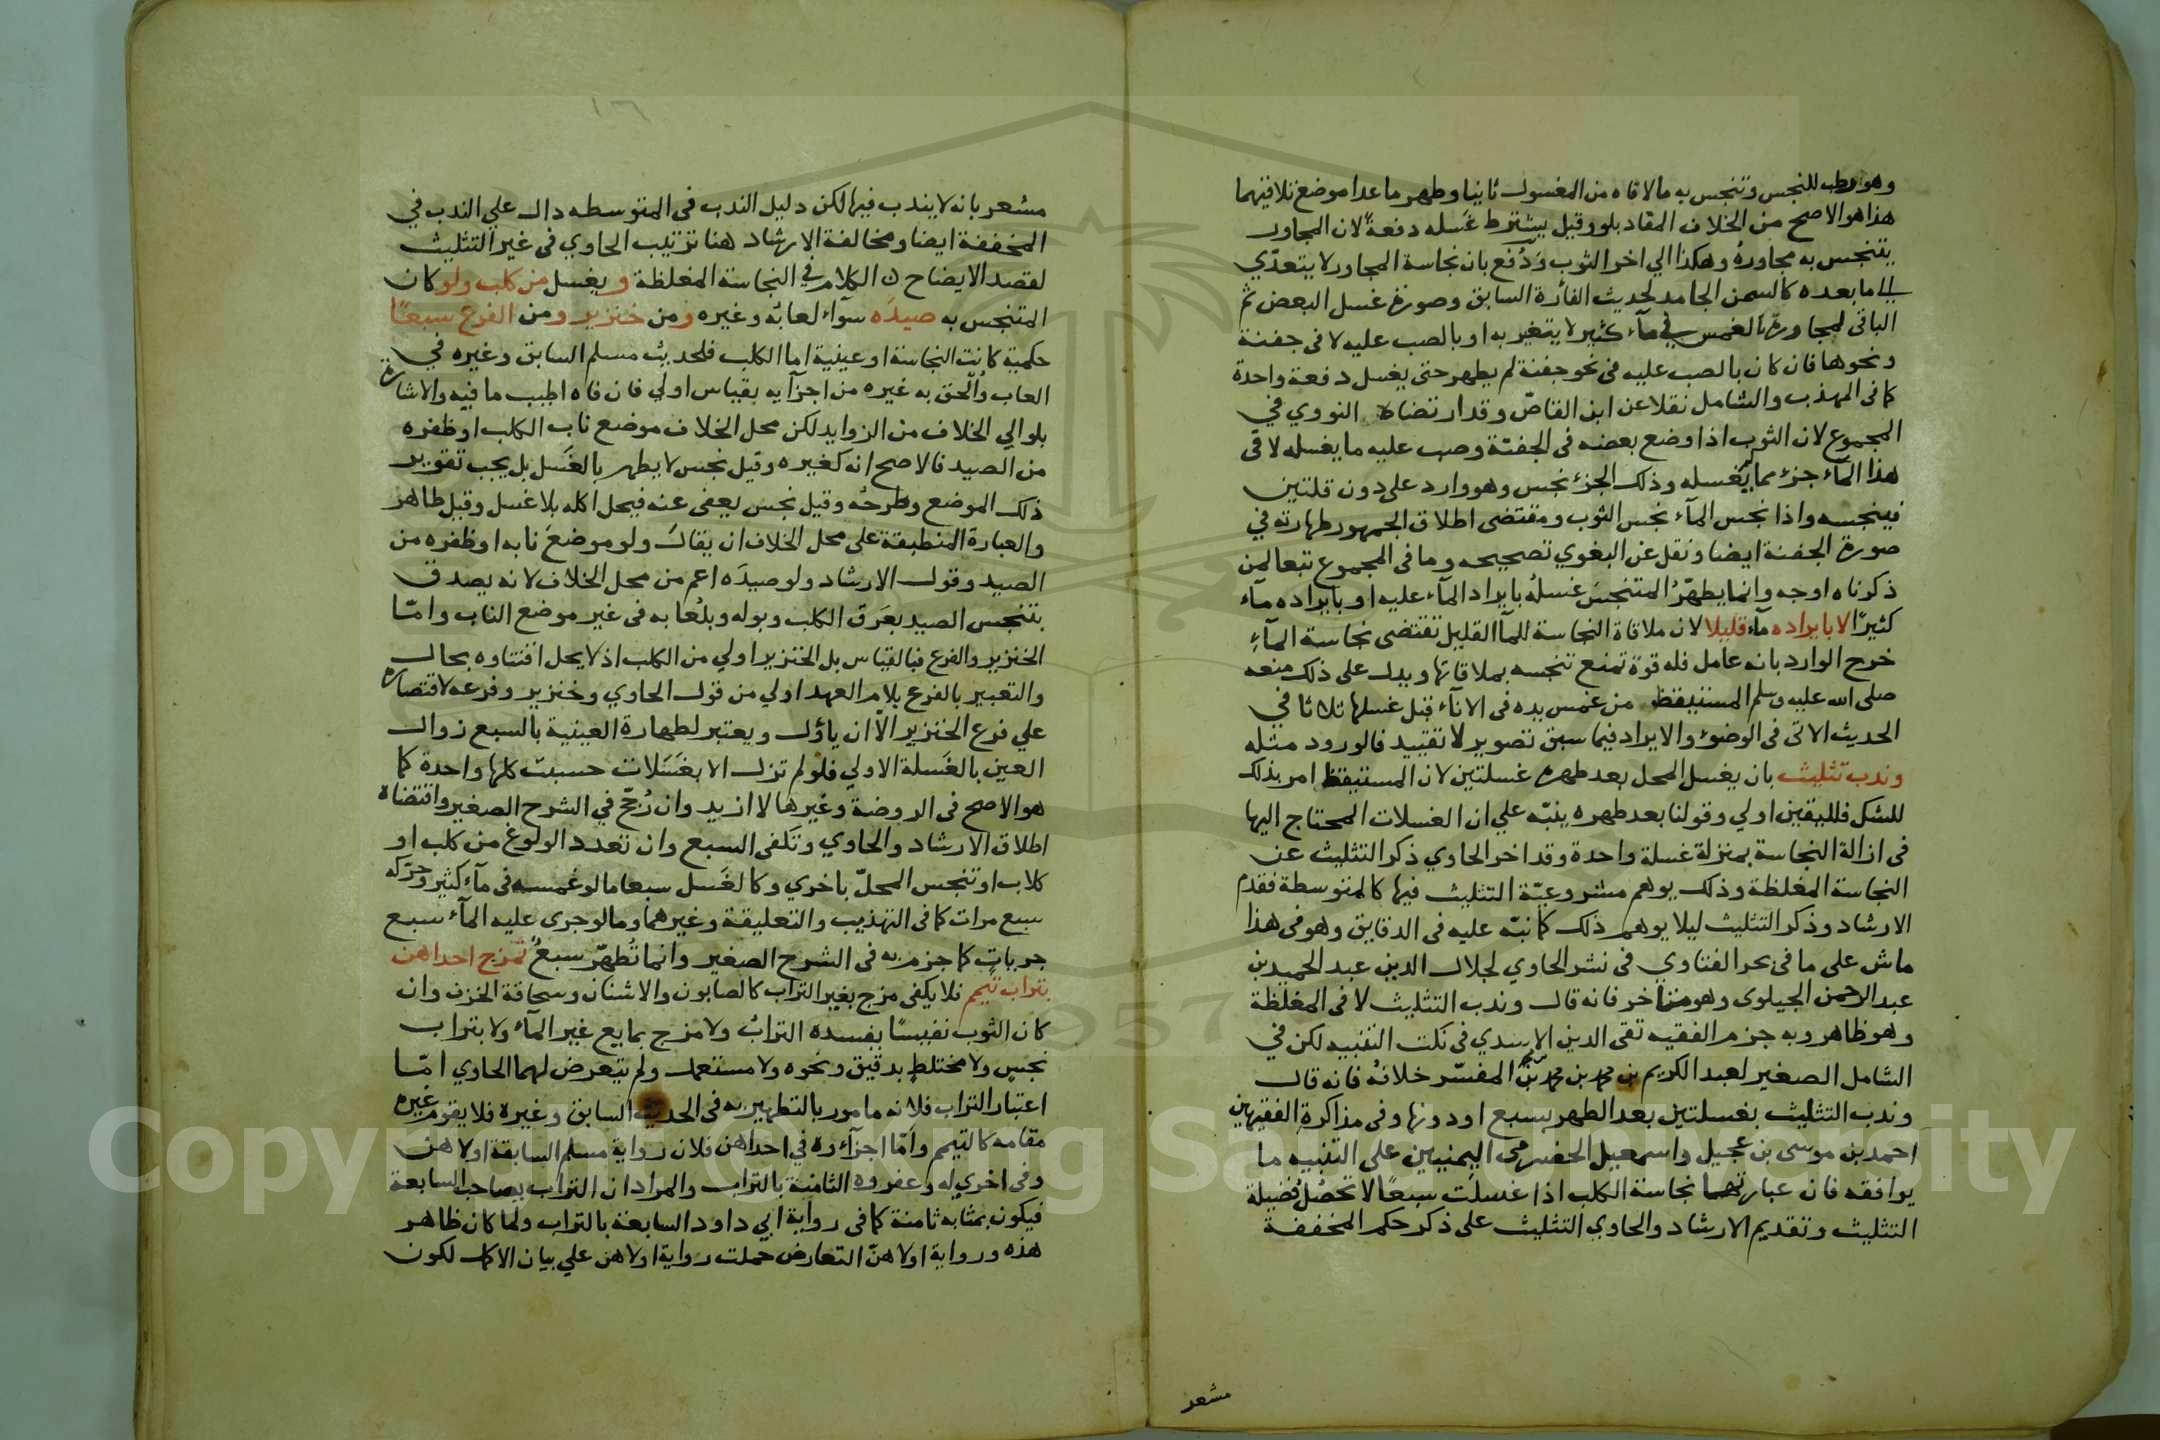 وهو رطب للنجس وتنجس به مالاقاه من المغسول ثانيا وطهر ما عدا موضع تلاقيهما
هذا هو الاصح من الخلاف المفاد بلو وقيل يشترط غَسله دفعةً لان المجاور
يتنجس به مجاورهُ وهكذا الي اخر الثوب وَدُفع بان نجاسة المجاور لا يتعدّي
الي ما بعده كالسمن الجامد لحديث الفأرة السابق وصورة غسل البعض ثم
الباقى لمجاورة بالغمس في مآء كثير لا يتغير به او بالصب عليه لا فى جفنة
ونحوها فان كان بالصب عليه فى نحو جفنة لم يطهر حتى يغسل دفعة واحدة
كما فى المهذب والشامل نقلا عن ابن القاصّ وقد ارتضاه النووي في
المجموع لان الثوب اذا وضع بعضه فى الجفنة وصب عليه ما يغسله لاقى
هذا المآء جزء مما لم يغسله وذلك الجزء نجس وهو وارد على دون قلتين
فينجسه واذا نجس المآء نجس الثوب ومقتضى اطلاق الجمهور طهارته في
صورة الجفنة ايضا ونقل عن البغوي تصحيحه وما فى المجموع تبعا لمن
ذكرناه اوجه وانما يطهّرُ المتنجسَ غسلهُ بايراد المآء عليه او بايراده مآء
كثيرًا لا بايراده مآء قليلا لان ملاقاة النجاسة للمآ القليل تقتضى نجاسة المآءِ
خرج الوارد بانه عامل فله قوة تمنع تنجسه بملاقاتها ويدل على ذلك منعه
صلى الله عليه وسلم المستيقظ من غمس يده فى الانآء قبل غسلها ثلاثا في
الحديث الاتى فى الوضوء والايراد فيما سبق تصوير لا تقييد فالورود مثله
وندب تثليث بان يغسل المحل بعد طهره غسلتين لان المستيقظ امر بذلك
للشك فلليقين اولي وقولنا بعد طهره ينبّه علي ان الغسلات المحتاج اليها
فى ازالة النجاسة بمنزلة غسلة واحدة وقد اخر الحاوي ذكر التثليث عن
النجاسة المغلظة وذلك يوهم مشروعيّة التثليث فيها كالمتوسطة فقدم
الارشاد وذكر التثليث ليلا يوهم ذلك كما نبّه عليه فى الدقايق وهو فى هذا
ماش على ما فى بحر الفتاوي فى نشر الحاوي لجلال الدين عبد الحميد بن
عبد الرحمن الجيلوى وهو متاخر فانه قال وندب التثليث لا فى المغلظة
وهو ظاهر وبه جزم الفقيه تقى الدين الاسدي فى نكت التنبيه لكن في
الشامل الصغير لعبد الكريم بن محمد بن محمد بن المفسّر خلافهُ فانه قال
وندب التثليث بغسلتين بعد الطهر بسبع او دونها وفى مذاكرة الفقيهين
احمد بن موسى بن عجيل واسمعيل الحضرمى اليمنيين على التنبيه ما
يوافقه فان عبارتهما نجاسة الكلب اذا غسلت سبعًا لا تحصُل فضيلة
التثليث وتقديم الارشاد والحاوي التثليث على ذكر حكم المخففة
مشعر
مشعر بانه لا يندب فيها لكن دليل الندب فى المتوسطه دال علي الندب في
المخففة ايضا ومخالفة الارشاد هنا ترتيب الحاوي فى غير التثليث
لقصد الايضاح ن الكلام في النجاسة المغلظة و يغسل من كلب ولو كان
المتنجس به صيدَه سوآء لعابُه وغيره ومن خنزير ومن الفرع سبعًا
حكمية كانت النجاسة او عينية اما الكلب فلحديث مسلم السابق وغيره في
العاب واُلحق به غيره من اجزآيه بقياس اولي فان فاه اطيب ما فيه والاشارة
بلو الي الخلاف من الزوايد لكن محل الخلاف موضع ناب الكلب او ظفره
من الصيد فالاصح انه كغيره وقيل نجس لا يطهر بالغَسل بل يجب تقوير
ذلك الموضع وطرحُه وقيل نجس يعفى عنه فيحل اكله بلا غسل وقيل طاهر
والعبارة المنطبقة على محل الخلاف ان يقال ولو موضعَ نابه او ظفره من
الصيد وقول الارشاد ولو صيدَه اعم من محل الخلاف لانه يصدق
بتنجس الصيد بعَرق الكلب وبوله وبلُعابه فى غير موضع الناب وامّا
الخنزير والفرع فبالقياس بل الخنزير اولي من الكلب اذ لا يحل اقتناوه بحال
والتعبير بالفرع بلام العهد اولي من قول الحاوي وخنزير وفرعه لاقتصاره
علي فرع الخنزير الّا ان ياوّل ويعتبر لطهارة العينية بالسبع زوال
العين بالغَسلة الاولي فلو لم تزل الا بغَسَلات حسبت كلها واحدة كما
هو الاصح فى الروضة وغيرها لا ازيد وان رُجّح في الشرح الصغير واقتضاه
اطلاق الارشاد والحاوي وتَكفى السبع وان تعدد الولوغ من كلب او
كلاب او تنجس المحلّ باخري وكالغَسل سبعا مالو غمسه فى مآء كثير وحرّكه
سبع مرات كما فى التهذيب والتعليقة وغيرهما ومالو جرى عليه المآء سبع
جريات كما جزم به فى الشرح الصغير وانما تُطهّر سبعٌ تمزج احداهن
بتراب تيمم فلا يكفى مزج بغير التراب كالصابون والاشنان وسحاقة الخزف وان
كان الثوب نفيسًا يفسده الترابُ ولا مزج بمايع غير المآء ولا بتراب
نجسٍ ولا مختلطٍ بدقيق ونحوه ولا مستعمل ولم يتعرض لهما الحاوي امّا
اعتبار التراب فلانه مامور بالتطهير به فى الحديث السابق وغيره فلا يقوم غيره
مقامه كالتيمم وامّا اجزآءوه في احداهن فلان رواية مسلم السابقة اولاهن
وفى اخري له وعفروه الثامنة بالتراب والمراد ان التراب يصاحب السابعة
فيكون بمثابه ثامنة كما فى رواية ابي داود السابعة بالتراب ولما كان ظاهر
هذه ورواية اولاهنّ التعارض حملت رواية اولاهن علي بيان الاكمل لكون
Copyright © King Saud University
1957